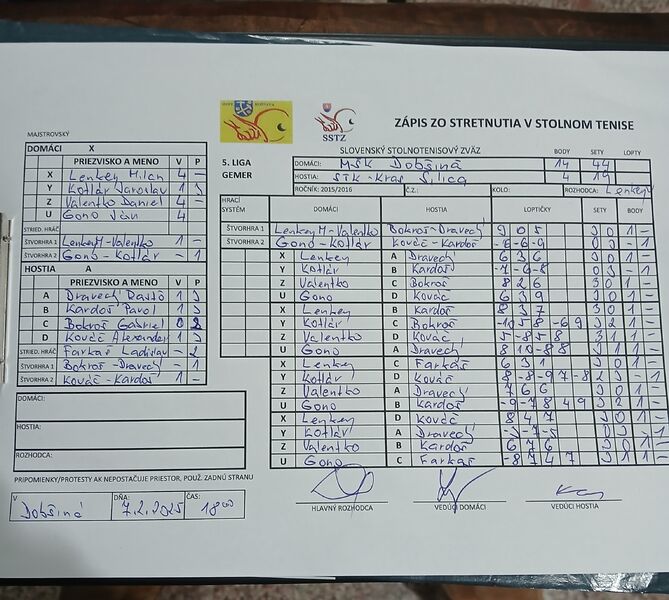 SSTZ
ZÁPIS ZO STRETNUTIA V STOLNOM TENISE
MAJSTROVSKÝ
DOMÁCI X
PRIEZVISKO A MENO V P
X Lenkey Milan 4 –
Y Kotlár Jaroslav 1 3
Z Valentko Daniel 4 –
U Gono Ján 4
STRIED. HRÁČ
ŠTVORHRA 1 Lenkey M-Valentko 1 –
ŠTVORHRA 2 Gono-Kotlár – 1
HOSTIA A
PRIEZVISKO A MENO V P
A Dravecký 1 3
B Kardoš Pavol 1 3
C Bokroš Gabriel 0 2
D Kováč Alexander 1 3
STRIED. HRÁČ Farkaš Ladislav – 2
ŠTVORHRA 1 Bokroš-Dravecký – 1
ŠTVORHRA 2 Kováč-Kardoš 1 –
DOMÁCI:
HOSTIA:
ROZHODCA:
PRIPOMIENKY/PROTESTY AK NEPOSTAČUJE PRIESTOR, POUŽ. ZADNÚ STRANU
V Dobšiná DŇA: 7.2.2025 ČAS: 18 00
5. LIGA
GEMER
SLOVENSKÝ STOLNOTENISOVÝ ZVÄZ BODY SETY LOPTY
DOMÁCI: MŠK Dobšiná 14 44
HOSTIA: STK-Kras Silica 4 19
ROČNÍK: 2015/2016 Č.Z.: KOLO: ROZHODCA: Lenkey
HRACÍ SYSTÉM DOMÁCI HOSTIA LOPTIČKY SETY BODY
ŠTVORHRA 1 Lenkey M-Valentko Bokroš-Dravecký 9 0 5 3 0 1 –
ŠTVORHRA 2 Gono-Kotlár Kováč-Kardoš -6-6-9 0 3 – 1
X Lenkey A Dravecký 6 3 6 3 0 1 –
Y Kotlár B Kardoš -7-6-8 0 3 – 1
Z Valentko C Bokroš 8 2 6 3 0 1 –
U Gono D Kováč 6 3 9 3 0 1 –
X Lenkey B Kardoš 8 3 7 3 0 1 –
Y Kotlár C Bokroš -10 5 8 -6 9 3 2 1 –
Z Valentko D Kováč 5 -8 5 8 3 1 1 –
U Gono A Dravecký 8 10 -8 8 3 1 1 –
X Lenkey C Farkaš 6 3 1 3 0 1 –
Y Kotlár D Kováč 8 -8 -9 7 -8 2 3 – 1
Z Valentko A Dravecký 7 6 6 3 0 1 –
U Gono B Kardoš -9 -7 8 4 9 3 2 1 –
X Lenkey D Kováč 8 4 7 3 0 1 –
Y Kotlár A Dravecký -3-7-5 0 3 – 1
Z Valentko B Kardoš 6 7 6 3 0 1 –
U Gono C Farkaš -8 7 4 7 3 1 1 –
HLAVNÝ ROZHODCA VEDÚCI DOMÁCI VEDÚCI HOSTIA